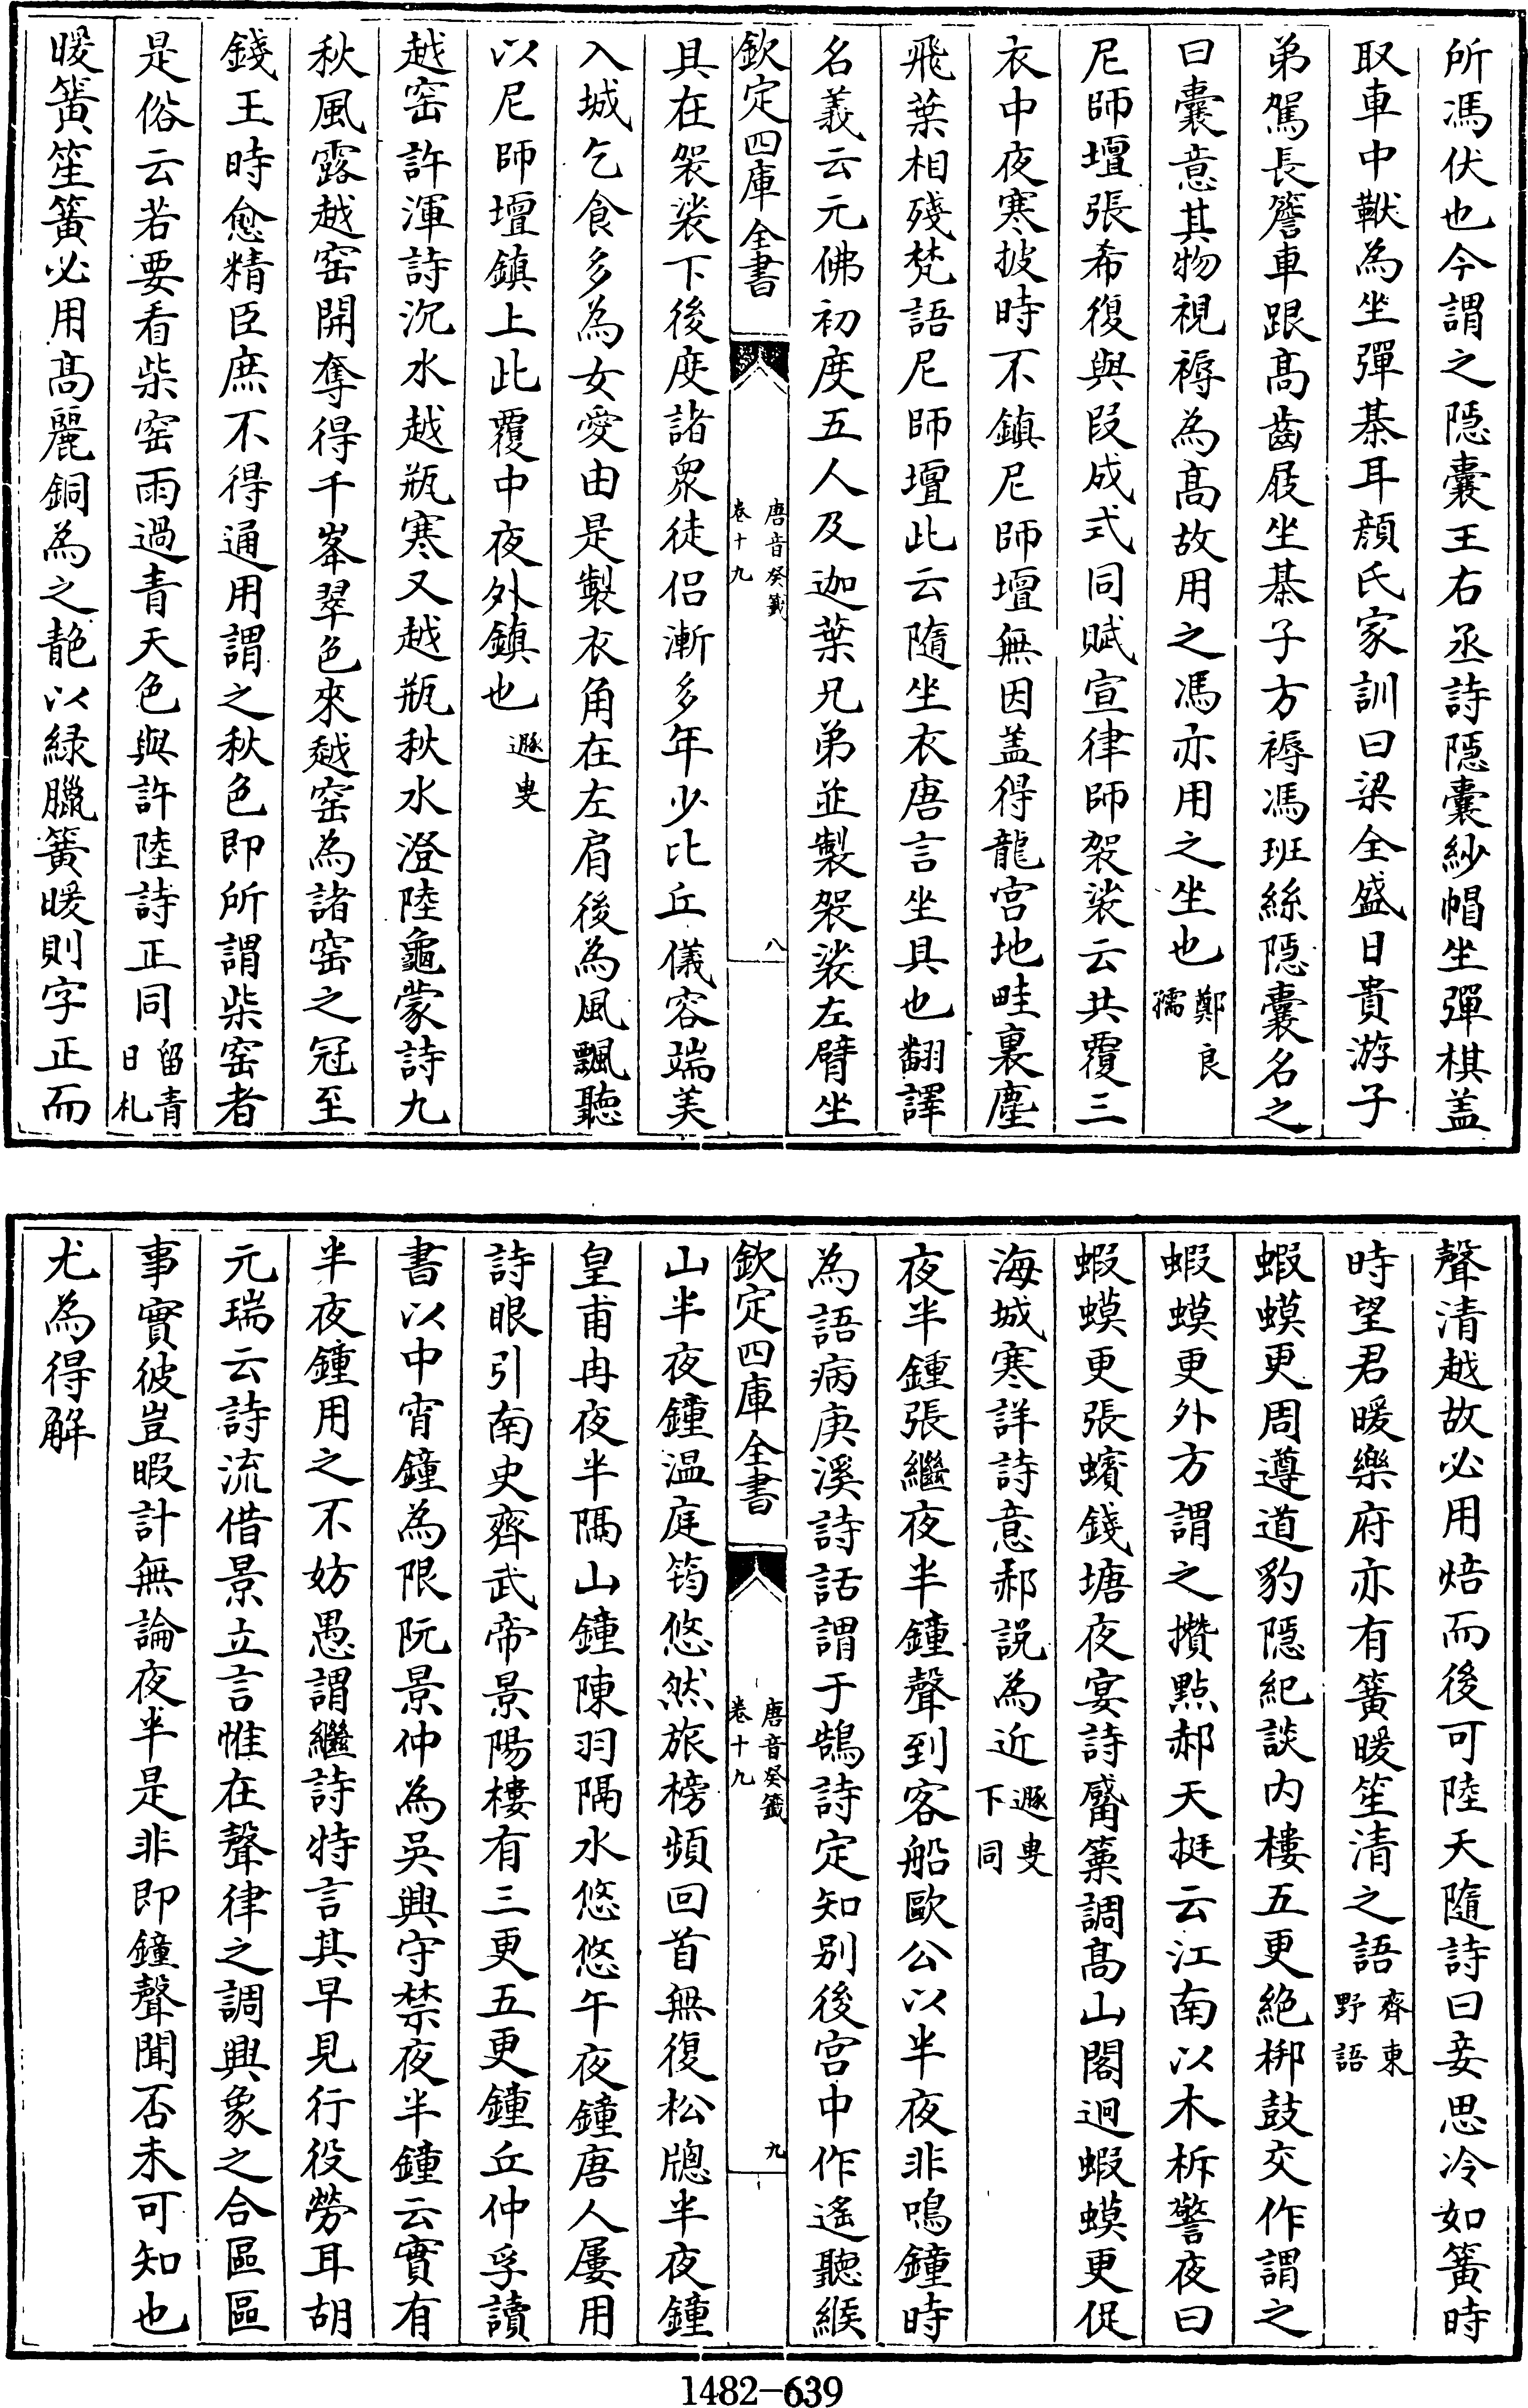 所馮伏也今謂之隠囊王右丞詩隠囊紗帽坐彈棋盖
取車中靱為坐彈棊耳顔氏家訓曰梁全盛日貴游子
弟駕長簷車跟髙齒屐坐棊子方褥馮班絲隠囊名之
曰囊意其物視褥為髙故用之馮亦用之坐也鄭良孺
尼師壇張希復與段成式同賦宣律師袈裟云共覆三
衣中夜寒披時不鎮尼師壇無因盖得龍宫地畦裏塵
飛葉相殘梵語尼師壇此云隨坐衣唐言坐具也翻譯
名義云元佛初度五人及迦葉兄弟並製袈裟左臂坐
欽定四庫全書 唐音癸籤 卷十九 八
具在袈裟下後度諸衆徒侣漸多年少比丘儀容端美
入城乞食多為女愛由是製衣角在左肩後為風飄聽
以尼師壇鎮上此覆中夜外鎮也遯叟
越窑許渾詩沉水越瓶寒又越瓶秋水澄陸龜蒙詩九
秋風露越窑開奪得千峯翠色來越窑為諸窑之冠至
錢王時愈精臣庶不得通用謂之秋色即所謂柴窑者
是俗云若要看柴窑雨過青天色與許陸詩正同留青日札
暖簧笙簧必用髙麗銅為之靘以緑臘簧暖則字正而
聲清越故必用焙而後可陸天隨詩曰妾思冷如簧時
時望君暖樂府亦有簧暖笙清之語齊東野語
蝦蟆更周遵道豹隠紀談内樓五更絶梆鼓交作謂之
蝦蟆更外方謂之攢點郝天挺云江南以木柝警夜曰
蝦蟆更張蠙錢塘夜宴詩觱篥調髙山閣迥蝦蟆更促
海城寒詳詩意郝説為近遯叟下同
夜半鍾張繼夜半鐘聲到客船歐公以半夜非鳴鐘時
為語病庚溪詩話謂于鵠詩定知别後宫中作遙聽緱
欽定四庫全書 唐音癸籤 卷十九 九
山半夜鐘温庭筠悠然旅榜頻回首無復松牕半夜鐘
皇甫冉夜半隔山鐘陳羽隔水悠悠午夜鐘唐人屢用
詩眼引南史齊武帝景陽樓有三更五更鐘丘仲孚讀
書以中宵鐘為限阮景仲為吳興守禁夜半鐘云實有
半夜鐘用之不妨愚謂繼詩特言其早見行役勞耳胡
元瑞云詩流借景立言惟在聲律之調興象之合區區
事實彼豈暇計無論夜半是非即鐘聲聞否未可知也
尤為得解
1482-639